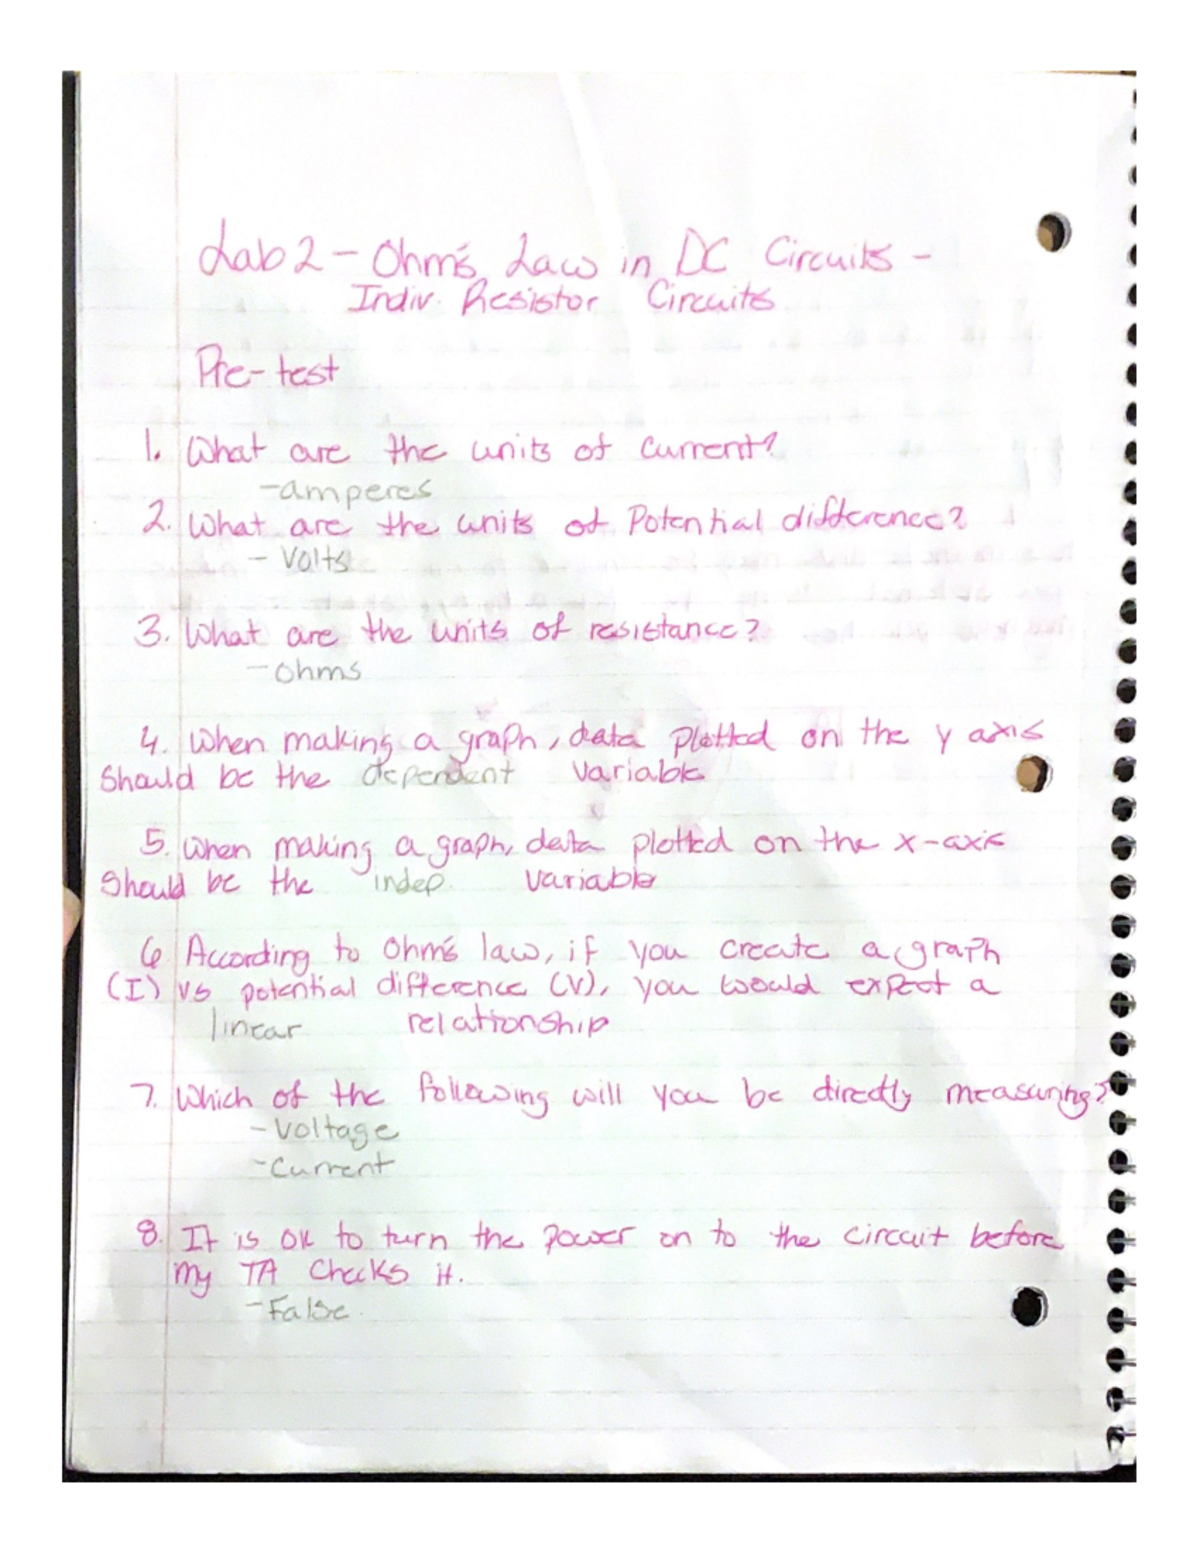 Lab 2 - Ohm's Law in DC Circuits -
Indiv. Resistor Circuits
Pre-test
1. What are the units of current?
- amperes
2. What are the units of Potential difference?
- Volts
3. What are the units of resistance?
- ohms
4. When making a graph, data plotted on the y axis
should be the dependent variable
5. When making a graph, data plotted on the x-axis
should be the indep. variable
6 According to Ohm's law, if you create a graph
(I) vs potential difference (V), you would expect a
linear relationship
7. Which of the following will you be directly measuring?
- Voltage
- Current
8. It is ok to turn the power on to the circuit before
my TA checks it.
- False